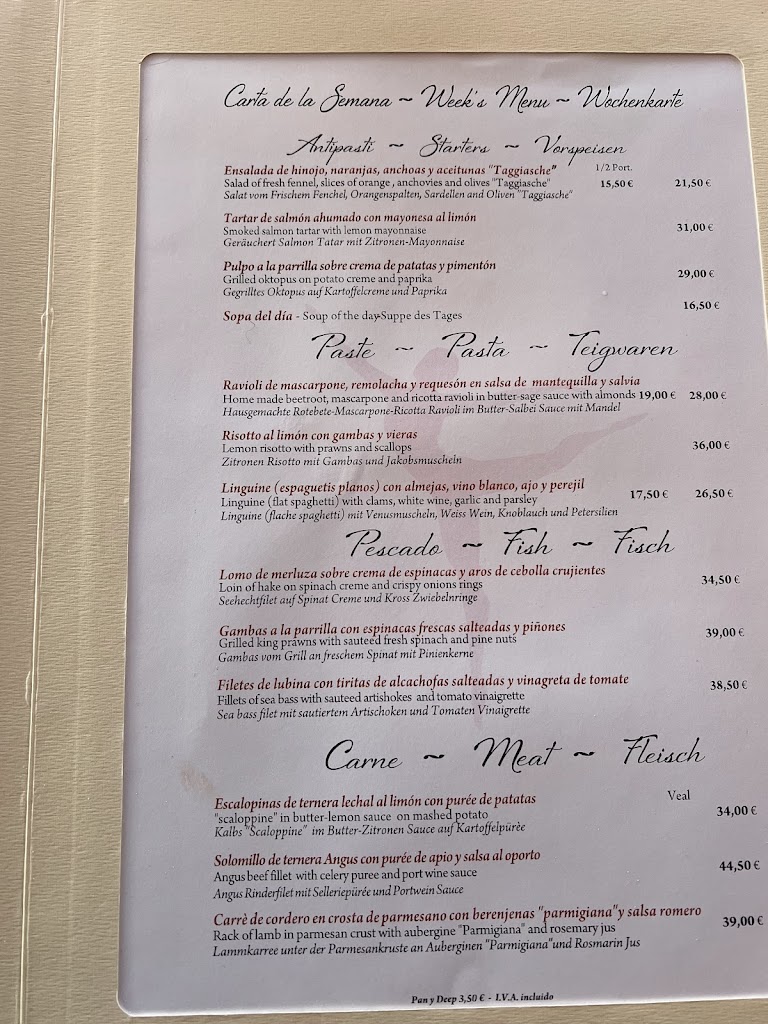 Carta de la Semana ~ Week's Menu ~ Wochenkarte
Antipasti ~ Starters ~ Vorspeisen
Ensalada de hinojo, naranjas, anchoas y aceitunas "Taggiasche" 1/2 Port.
Salad of fresh fennel, slices of orange , anchovies and olives "Taggiasche" 15,50 € 21,50 €
Salat vom Frischem Fenchel, Orangenspalten, Sardellen and Oliven "Taggiasche"
Tartar de salmón ahumado con mayonesa al limón
Smoked salmon tartar with lemon mayonnaise 31,00 €
Geräuchert Salmon Tatar mit Zitronen-Mayonnaise
Pulpo a la parrilla sobre crema de patatas y pimentón
Grilled oktopus on potato creme and paprika 29,00 €
Gegrilltes Oktopus auf Kartoffelcreme und Paprika
Sopa del día - Soup of the day-Suppe des Tages 16,50 €
Paste ~ Pasta ~ Teigwaren
Ravioli de mascarpone, remolacha y requesón en salsa de mantequilla y salvia
Home made beetroot, mascarpone and ricotta ravioli in butter-sage sauce with almonds 19,00 € 28,00 €
Hausgemachte Rotebete-Mascarpone-Ricotta Ravioli im Butter-Salbei Sauce mit Mandel
Risotto al limón con gambas y vieras
Lemon risotto with prawns and scallops 36,00 €
Zitronen Risotto mit Gambas und Jakobsmuscheln
Linguine (espaguetis planos) con almejas, vino blanco, ajo y perejil
Linguine (flat spaghetti) with clams, white wine, garlic and parsley 17,50 € 26,50 €
Linguine (flache spaghetti) mit Venusmuscheln, Weiss Wein, Knoblauch und Petersilien
Pescado ~ Fish ~ Fisch
Lomo de merluza sobre crema de espinacas y aros de cebolla crujientes
Loin of hake on spinach creme and crispy onions rings 34,50 €
Seehechtfilet auf Spinat Creme und Kross Zwiebelnringe
Gambas a la parrilla con espinacas frescas salteadas y piñones
Grilled king prawns with sauteed fresh spinach and pine nuts 39,00 €
Gambas vom Grill an freschem Spinat mit Pinienkerne
Filetes de lubina con tiritas de alcachofas salteadas y vinagreta de tomate
Fillets of sea bass with sauteed artishokes and tomato vinaigrette 38,50 €
Sea bass filet mit sautiertem Artischoken und Tomaten Vinaigrette
Carne ~ Meat ~ Fleisch
Escalopinas de ternera lechal al limón con purée de patatas Veal
"scaloppine" in butter-lemon sauce on mashed potato 34,00 €
Kalbs "Scaloppine" im Butter-Zitronen Sauce auf Kartoffelpürèe
Solomillo de ternera Angus con purée de apio y salsa al oporto
Angus beef fillet with celery puree and port wine sauce 44,50 €
Angus Rinderfilet mit Selleriepürée und Portwein Sauce
Carrè de cordero en crosta de parmesano con berenjenas "parmigiana" y salsa romero
Rack of lamb in parmesan crust with aubergine "Parmigiana" and rosemary jus 39,00 €
Lammkarree unter der Parmesankruste an Auberginen "Parmigiana"und Rosmarin Jus
Pan y Deep 3,50 € - I.V.A. incluido